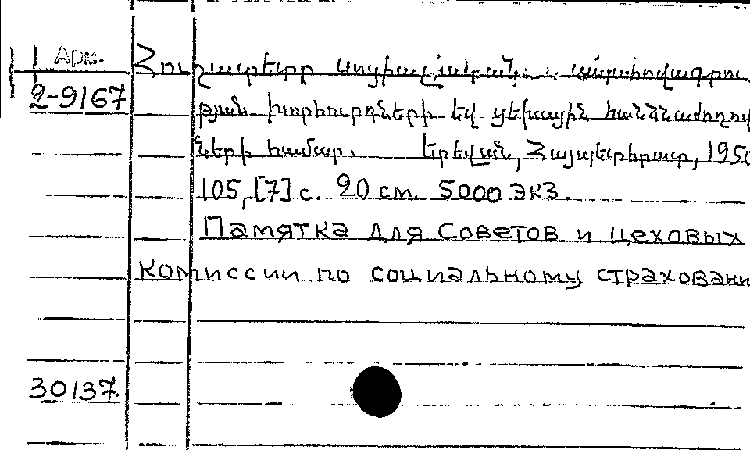 Арм.
2-9167
Հուշատետր սոցիալական ապահովագրու
թյան խորհուրդների եվ ցեխային հանձնաժողով
ների համար. Երեվան, Հայպետհրատ, 1950
105, [7] с. 20 см. 5000 экз.
Памятка для Советов и цеховых
комиссии по социальному страховани
30137